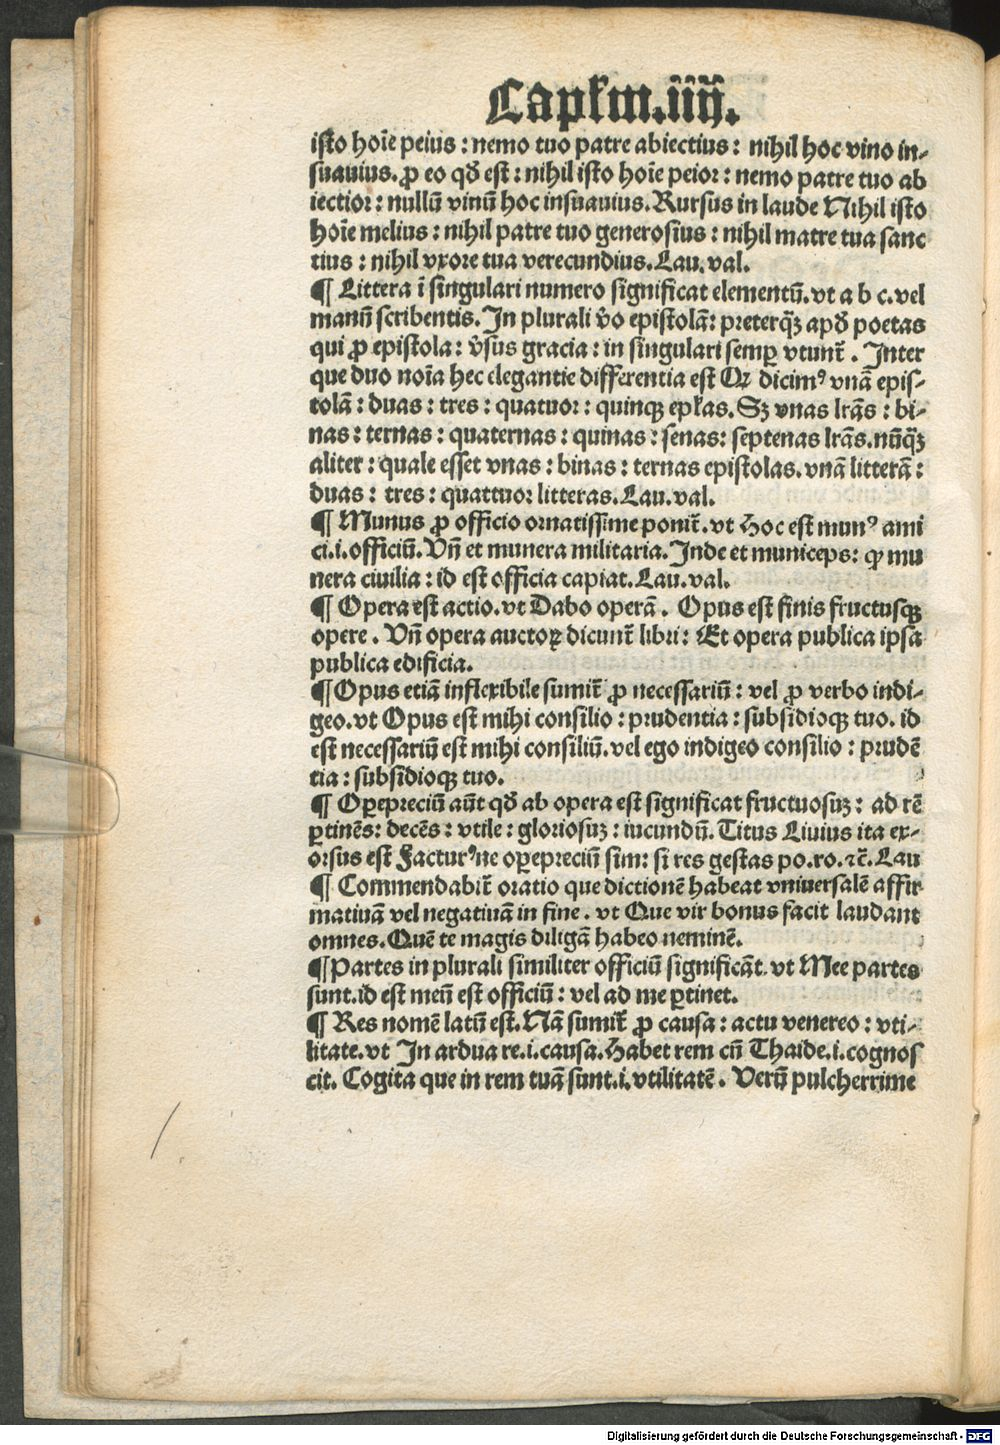 Capkm.iiij.
isto hoīe peius : nemo tuo patre abiectius : nihil hoc vino in-
suauius. ꝓ eo qď est : nihil isto hoīe peior : nemo patre tuo ab
iectior : nullū vinū hoc insuauius. Rursus in laude Nihil isto
hoīe melius : nihil patre tuo generosius : nihil matre tua sanc
tius : nihil vxore tua verecundius. Lau. val.
¶ Littera ī singulari numero significat elementū. vt a b c. vel
manū scribentis. In plurali v̄o epistolā: preterq̄ꝫ apď poetas
qui ꝓ epistola : v̄sus gracia : in singulari semꝑ vtunt̄ . Inter
que duo noīa hec elegantie differentia est Qꝛ dicimꝰ vnā epis-
tolā : duas : tres : quatuor : quinqꝫ epl̄as. Sꝫ vnas lr̄as : bi-
nas : ternas : quaternas : quinas : senas: septenas lr̄as. nūq̄ꝫ
aliter : quale esset vnas : binas : ternas epistolas. vnā litterā :
duas : tres : quattuor litteras. Lau. val.
¶ Munus ꝓ officio ornatissime ponit̄. vt Hoc est munꝰ ami
ci .i. officiū. Vn̄ et munera militaria. Inde et municeps: ꝙ mu
nera ciuilia : id est officia capiat. Lau. val.
¶ Opera est actio. vt Dabo operā . Opus est finis fructusqꝫ
opere . Vn̄ opera auctoꝝ dicunt̄ libri : Et opera publica ipsa
publica edificia.
¶ Opus etiā inflexibile sumit̄ ꝓ necessariū : vel ꝓ verbo indi-
geo. vt Opus est mihi consilio : prudentia : subsidioqꝫ tuo. id
est necessariū est mihi consiliū. vel ego indigeo consilio : prudē
tia : subsidioqꝫ tuo.
¶ Oꝑepreciū aūt qď ab opera est significat fructuosuꝫ : ad rē
ꝑtinēs: decēs : vtile : gloriosuꝫ : iucundū. Titus Liuius ita ex-
orsus est Facturꝰne oꝑepreciū sim: si res gestas po. ro. ⁊c̄. Lau
¶ Commendabit̄ oratio que dictionē habeat vniuersalē affir
matiuā vel negatiuā in fine . vt Que vir bonus facit laudant
omnes. Quē te magis diligā habeo neminē.
¶ Partes in plurali similiter officiū significāt. vt Mee partes
sunt. id est meū est officiū : vel ad me ꝑtinet.
¶ Res nomē latū est. Nā sumit̄ ꝓ causa : actu venereo : vti-
litate. vt In ardua re .i. causa. Habet rem cū Thaide .i. cognos
cit. Cogita que in rem tuā sunt .i. vtilitatē . Verū pulcherrime
Digitalisierung gefördert durch die Deutsche Forschungsgemeinschaft - DFG